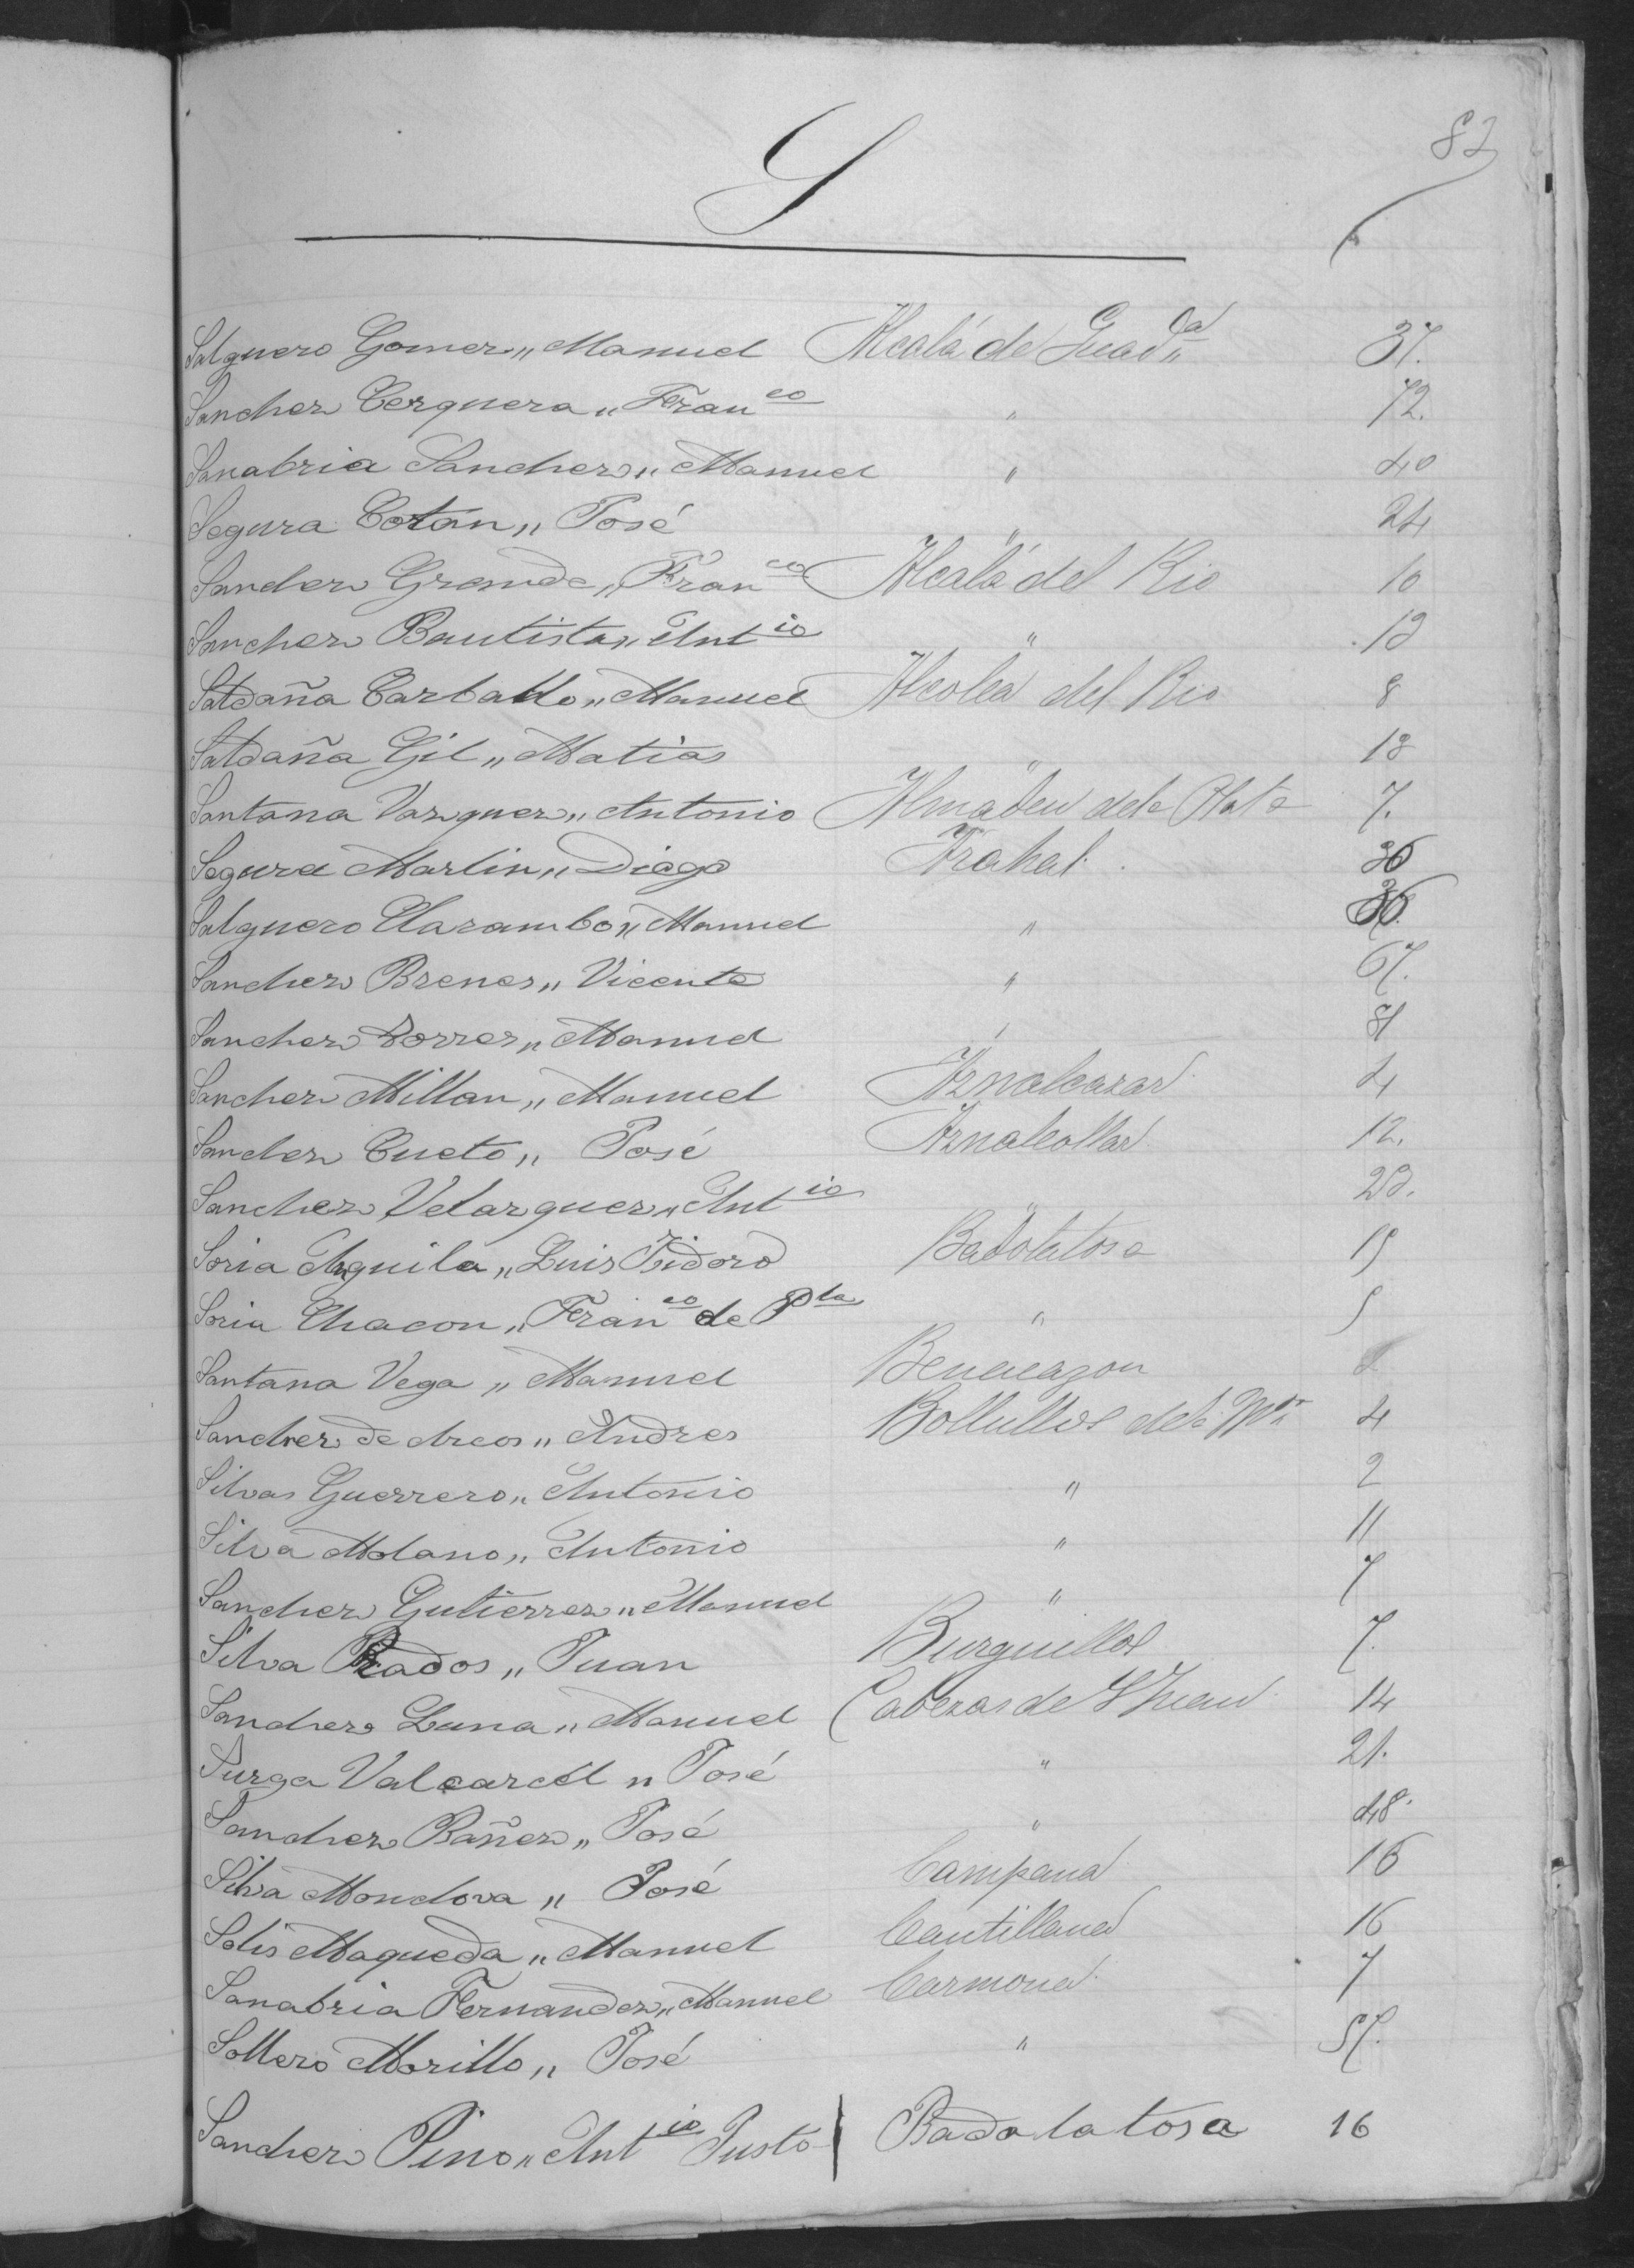 82
S
Salguero Gomez „ Manuel Alcalá de Guad.ª 37.
Sanchez Cerquera „ Fran.co " 72.
Sanabria Sanchez „ Manuel " 40
Segura Cotán „ José " 24
Sanchez Grande „ Fran.co Alcalá del Rio 10
Sanchez Bautista „ Ant.io "
Saldaña Carballo „ Manuel Alcolea del Rio 8
Saldaña Gil „ Matias " 18
Santana Vazquez „ Antonio Almaden dela Plata 7.
Segura Martin „ Diego Arahal. 36
Salguero Charambo „ Manuel " 36.
Sanchez Brenes „ Vicente " 67.
Sanchez Torres „ Manuel " 81
Sanchez Millan „ Manuel Aznalcazar 4
Sanchez Cueto „ José Aznalcollar 12.
Sanchez Velazquez „ Ant.io " 23.
Soria Aguila „ Luis Isidoro Badolatosa 15
Soria Chacon „ Fran.co de P.la " 5
Santana Vega „ Manuel Benacazon
Sanchez de Arcos „ Andres Bollullos dela M.n 4
Silvas Guerrero „ Antonio " 2
Silva Molano „ Antonio " 11
Sanchez Gutierrez „ Manuel " 7
Silva Prados „ Juan Burguillos 7.
Sanchez Luna „ Manuel Cabezas de S Juan 14
Surga Valcarcel „ José " 21.
Sanchez Bañez „ José " 48.
Silva Mondova „ José Campana 16
Solis Maqueda „ Manuel Cantillana 16
Sanabria Fernandez „ Manuel Carmona 7
Sollero Morillo „ José " 57.
Sanchez Pino „ Ant.io Justo Badolatosa 16